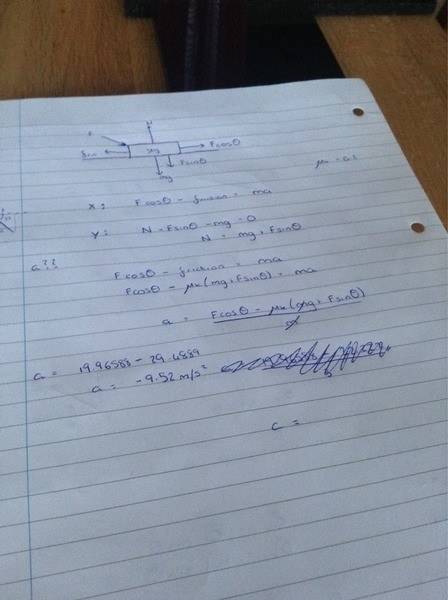 N
F
fric
5kg
Fcosθ
Fsinθ
mg
x: Fcosθ - friction = ma
y: N - Fsinθ - mg = 0
N = mg + Fsinθ
a??
Fcosθ - friction = ma
Fcosθ - μk(mg + Fsinθ) = ma
a = Fcosθ - μk(mg + Fsinθ)
a = 19.96583 - 29.4889
a = -9.52 m/s²
c =